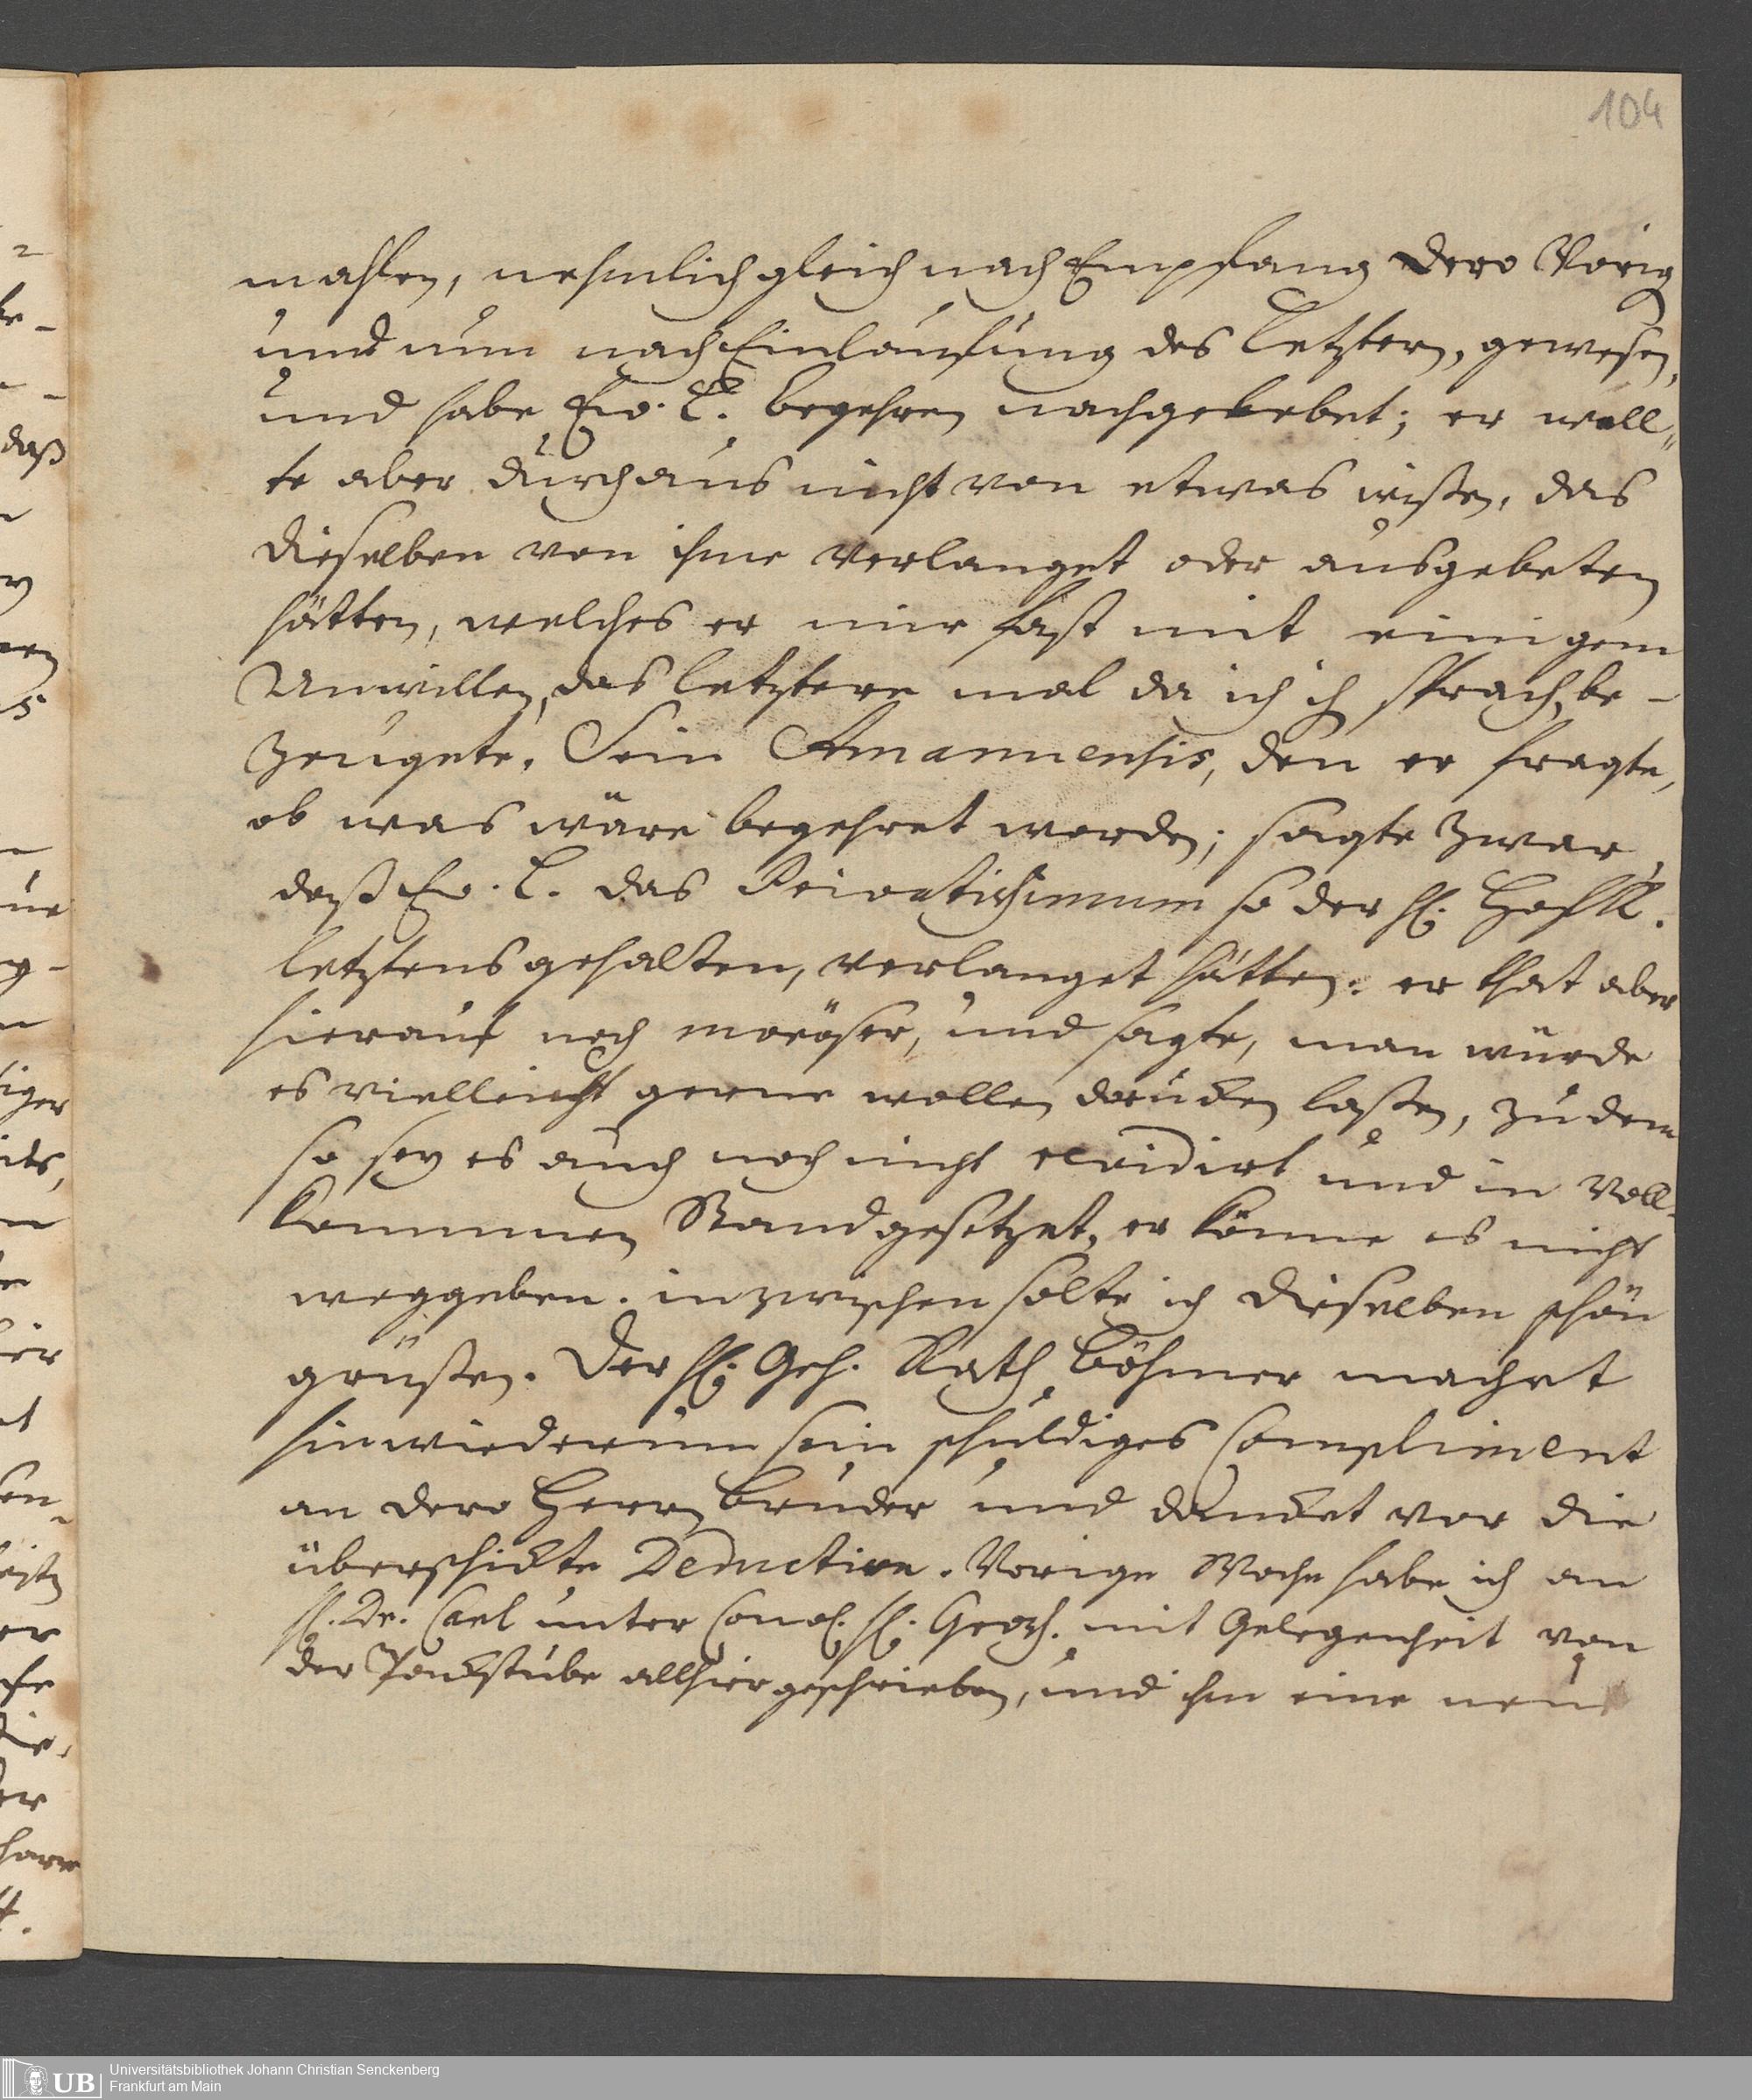 104
mahlen, nehmlich gleich nach Empfang dero Vorig
und nun nach Einlaufung des letztern, gewesen,
und habe Ew. L. begehren nachgelebet; er woll„
te aber durchaus nicht von etwas wißen, das
dieselben von ihme verlanget oder ausgebeten
hätten, welches er mir fast mit einigem
Unwillen, das letztere mal da ich ih sprach, be-
zeugete. Sein Amanuensis, den er fragte,
ob was wäre begehret worden; sagte zwar,
daß Ew. L. das Privatissimum so der H. HofR.
letztens gehalten, verlanget hätten. er that aber
hierauf noch moröser, und sagte, man würde
es vielleicht gerne wollen drucken laßen, zu dem
so sey es auch noch nicht revidirt und in voll-
kommen Stand gesetzet, er könne es nicht
weggeben. inzwischen solte ich dieselben schön
grüßen. Der H. Geh. Rath Böhmer machet
hinwiederum sein schuldiges Compliment
an dero Herrn Bruder und dancket vor die
überschickte Deduction. Vorige Woche habe ich an
H. Dr. Carl unter H. mit Gelegenheit von
der Packstube allhier geschrieben, und ihm eine neue
daß
Universitätsbibliothek Johann Christian Senckenberg
Frankfurt am Main
UB